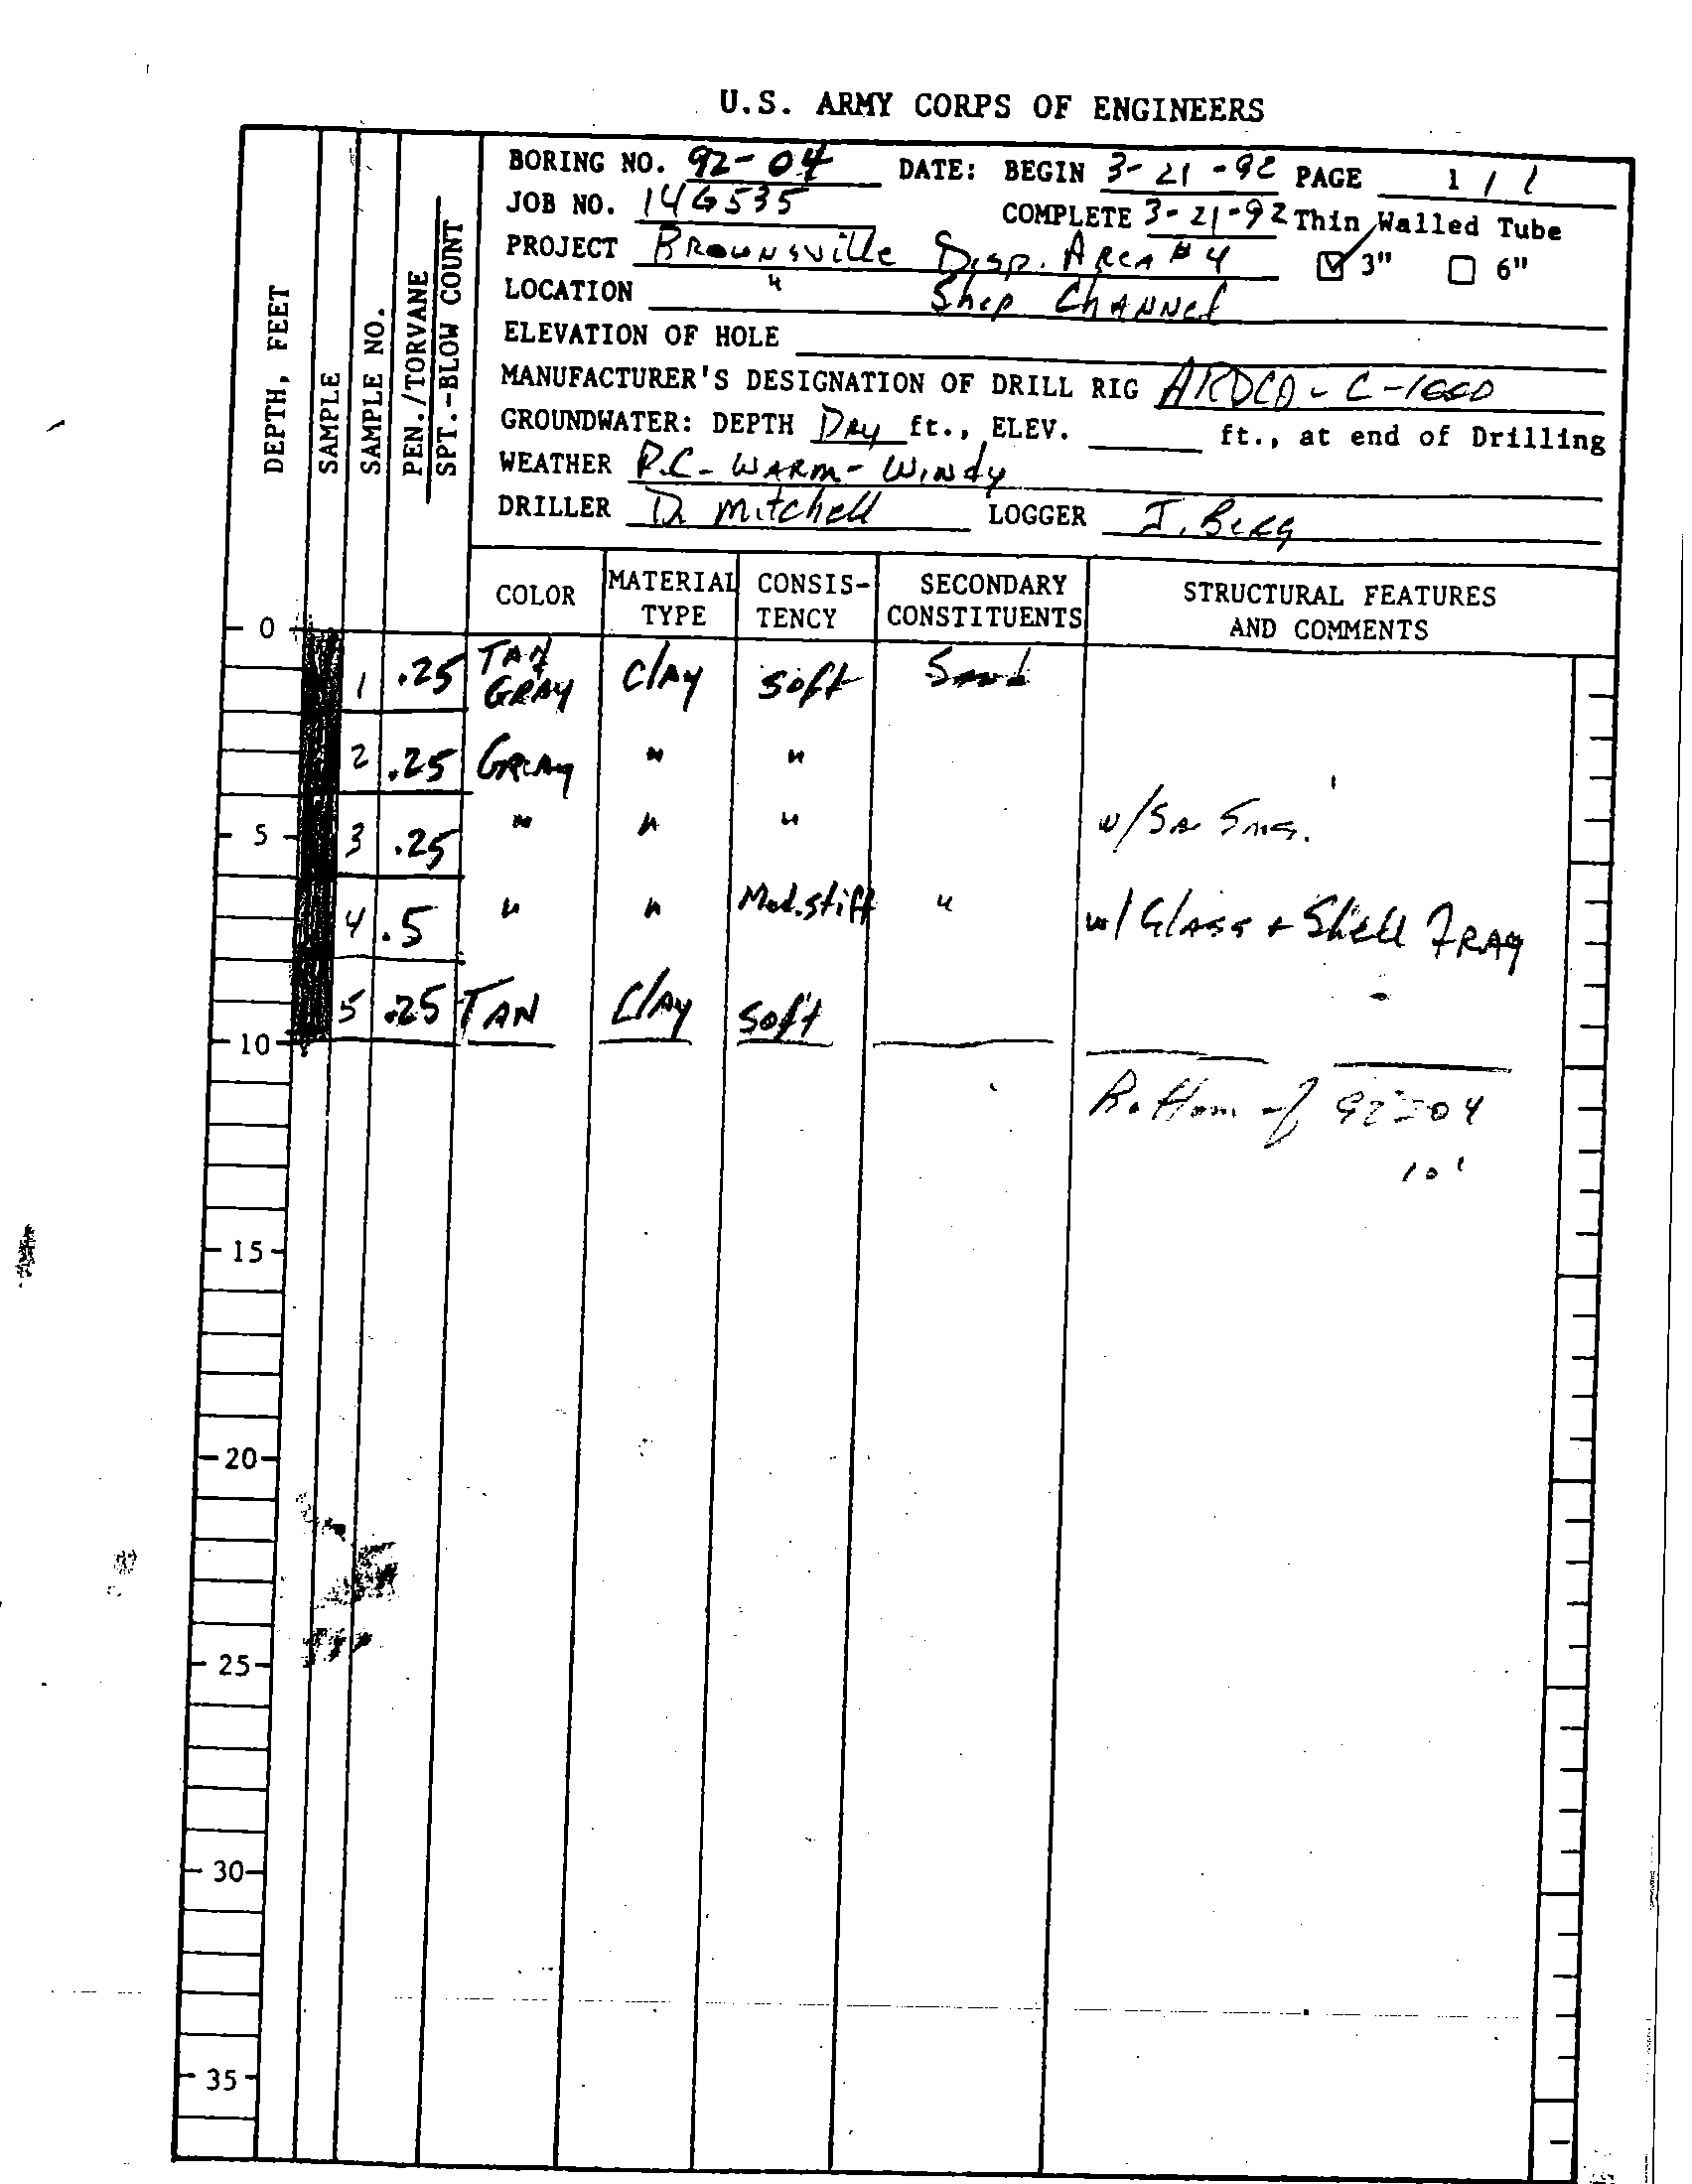 U.S. ARMY CORPS OF ENGINEERS
BORING NO. 92-04 DATE: BEGIN 3-21-92 PAGE 1 / 1
JOB NO. 14G535 COMPLETE 3-21-92 Thin Walled Tube
PROJECT Brownsville Disp. Area #4 3" 6"
LOCATION " Ship Channel
ELEVATION OF HOLE
MANUFACTURER'S DESIGNATION OF DRILL RIG ARDCO - C-1000
GROUNDWATER: DEPTH Dry ft., ELEV. ft., at end of Drilling
WEATHER P.C - WARM - Windy
DRILLER D. Mitchell LOGGER J. Berg
DEPTH, FEET
SAMPLE
SAMPLE NO.
PEN./TORVANE
SPT.-BLOW COUNT
COLOR MATERIAL TYPE CONSIS-TENCY SECONDARY CONSTITUENTS STRUCTURAL FEATURES AND COMMENTS
0
1 .25 TAN GRAY Clay Soft Sand
2 .25 GRAY " "
5 3 .25 " " " w/Sa Sms.
4 .5 " " Med. stiff " w/ Glass + Shell FRAG
5 .25 TAN Clay Soft
10
Bottom of 92-04
10'
15
20
25
30
35